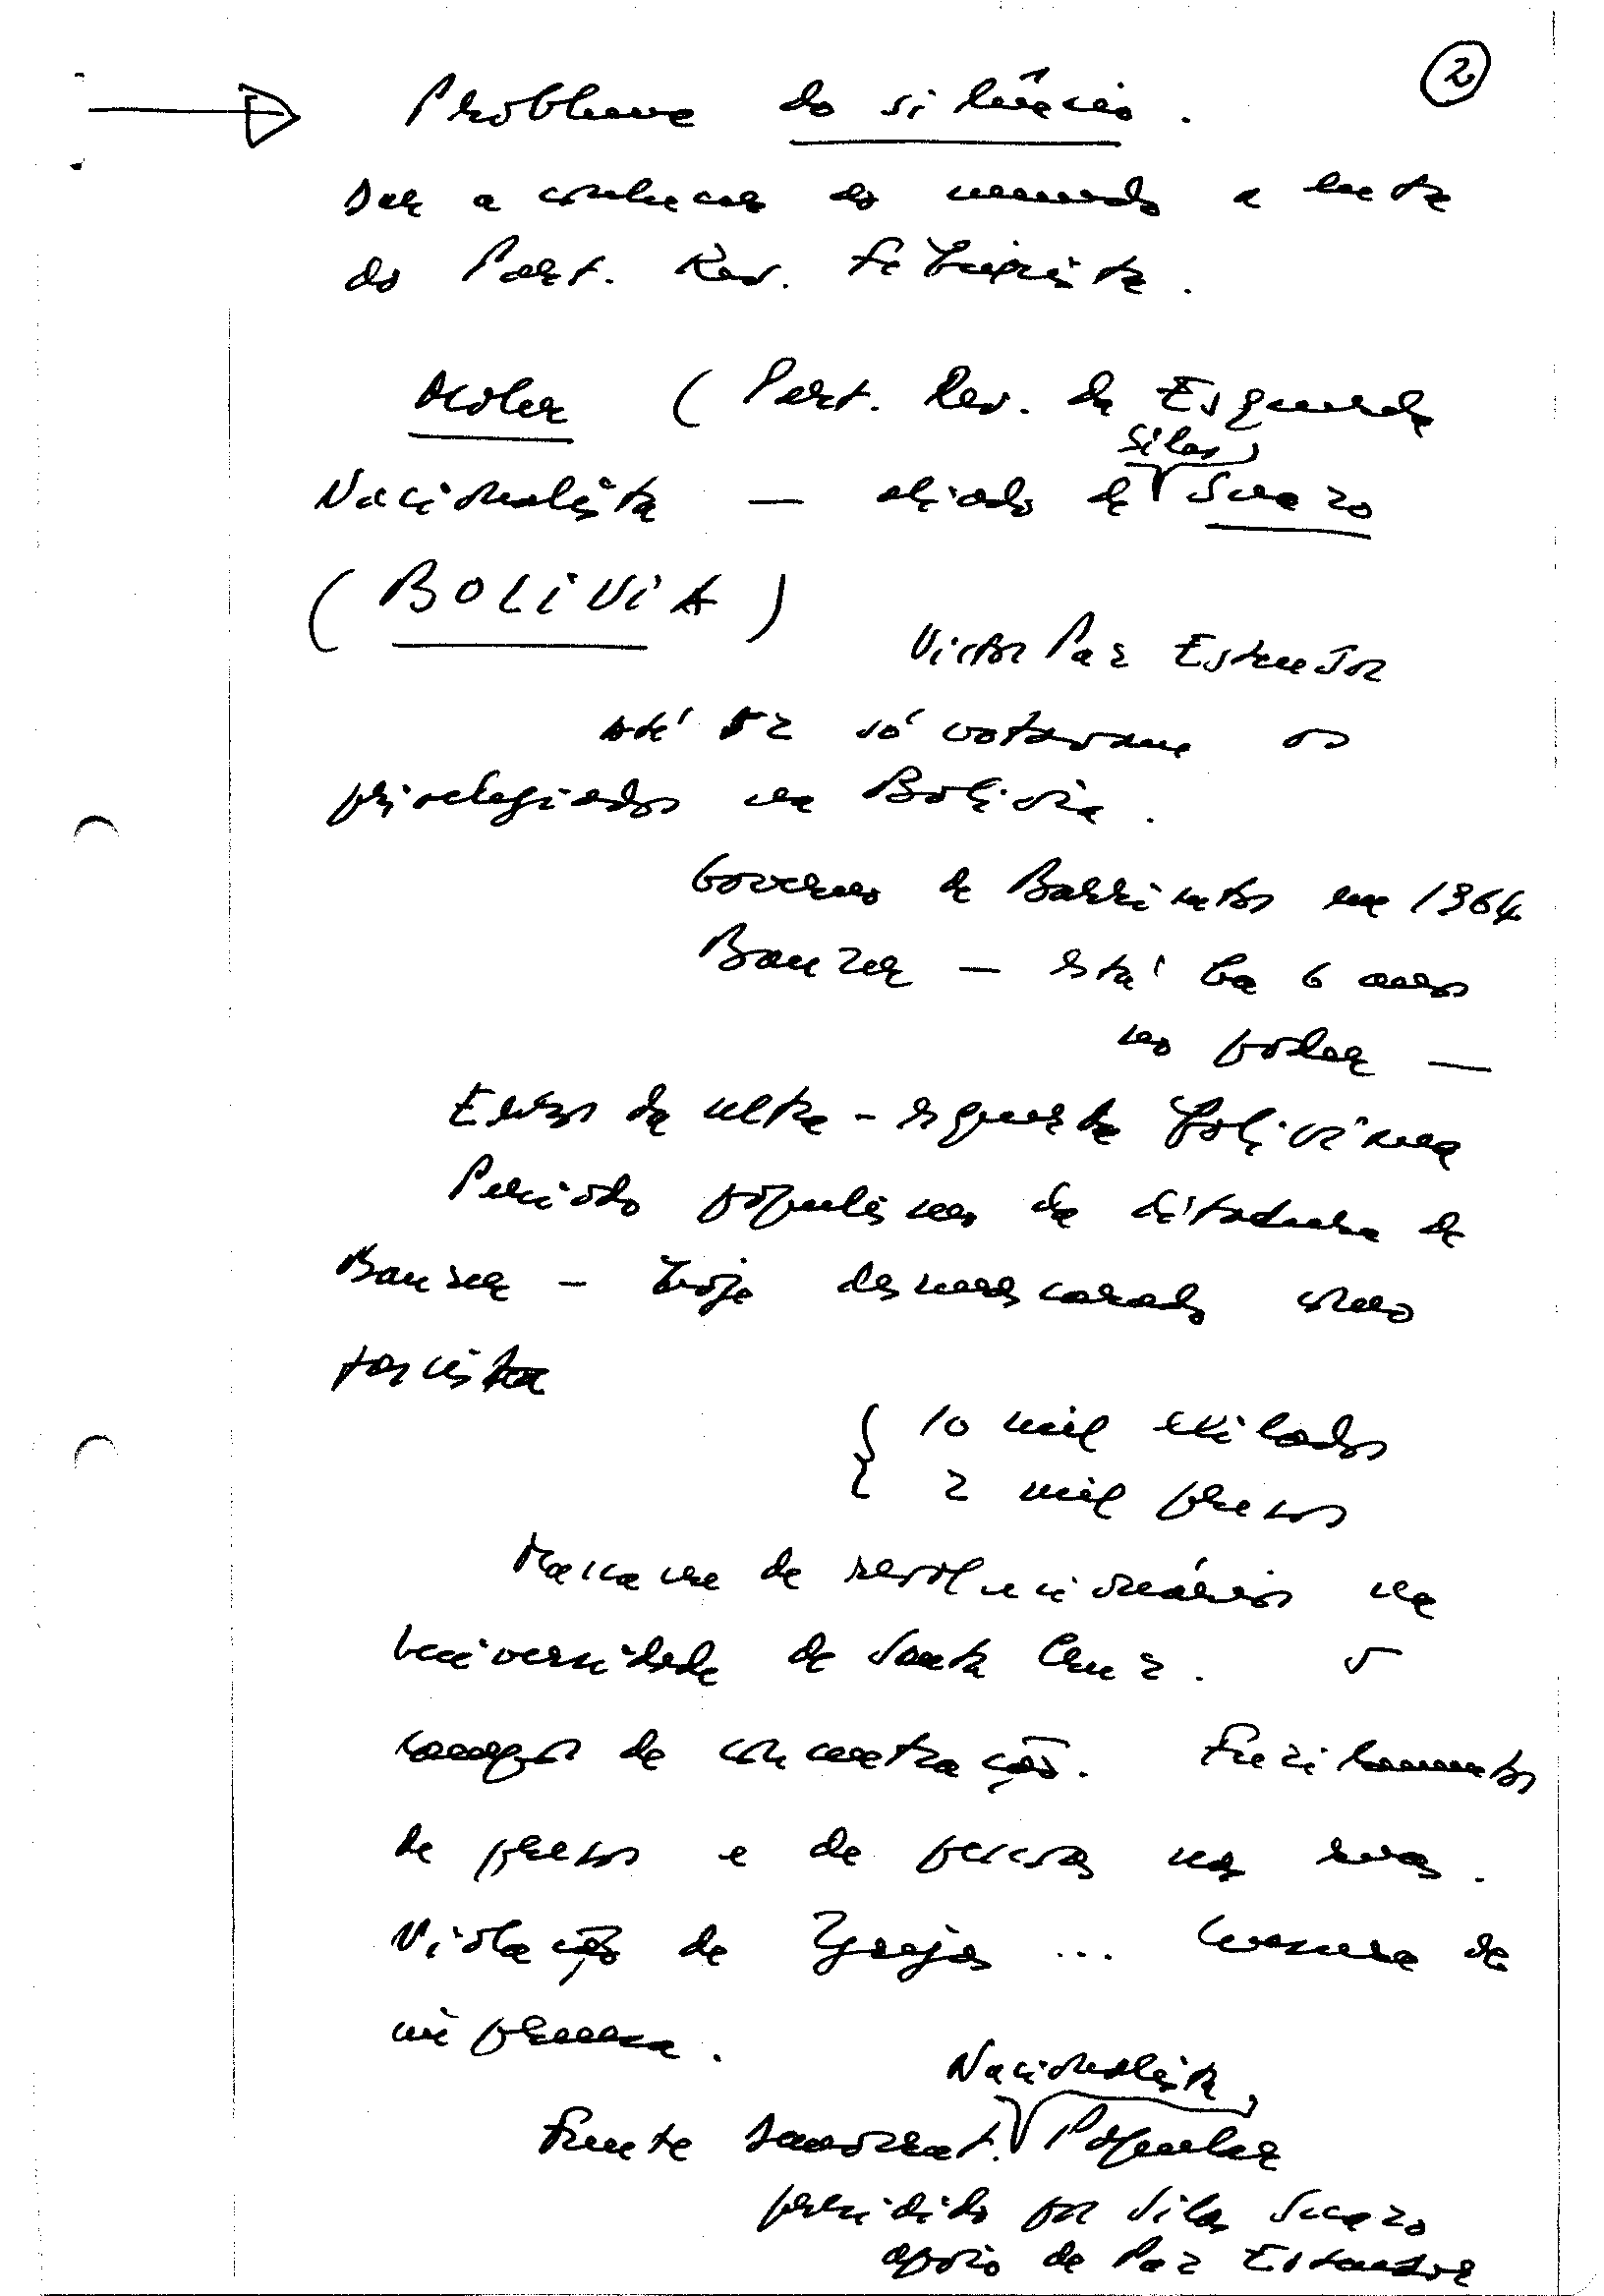 2
Problema do silêncio.
Dar a conhecer ao mundo a luta
do Part. Rev. Febrerista.
(Part. Rev. da Esquerda
Siles
Nacionalista — aliado de Suazo
(BOLIVIA)
Victor Paz Estensor
até 52 só votavam os
privelegiados na Bolivia.
Governo de Barrientos em 1964
Banzer — está há 6 anos
no poder —
Erros da ultra-esquerda boliviana
Periodo populismo da ditadura de
Banzer — hoje desmascarado como
fascista
{ 10 mil exilados
2 mil presos
Massacre de revolucionários na
Universidade de Santa Cruz.
campos de concentração. Fuzilamentos
de presos e de pessoas nas ruas.
Violação de Igrejas ... Censura de
imprensa.
Nacionalista
Frente Democrat. Popular
presidido por Siles Suazo
apoio de Paz Estensor